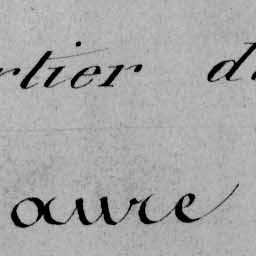 rtier d
aure